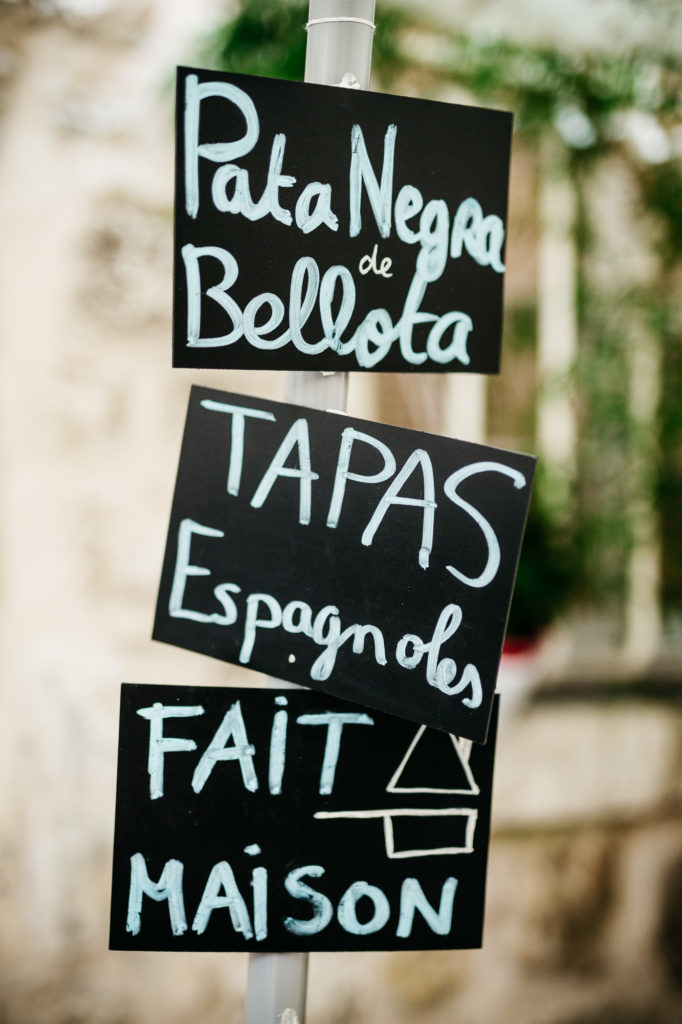 Pata Negra
de
Bellota
TAPAS
Espagnoles
FAIT
MAISON